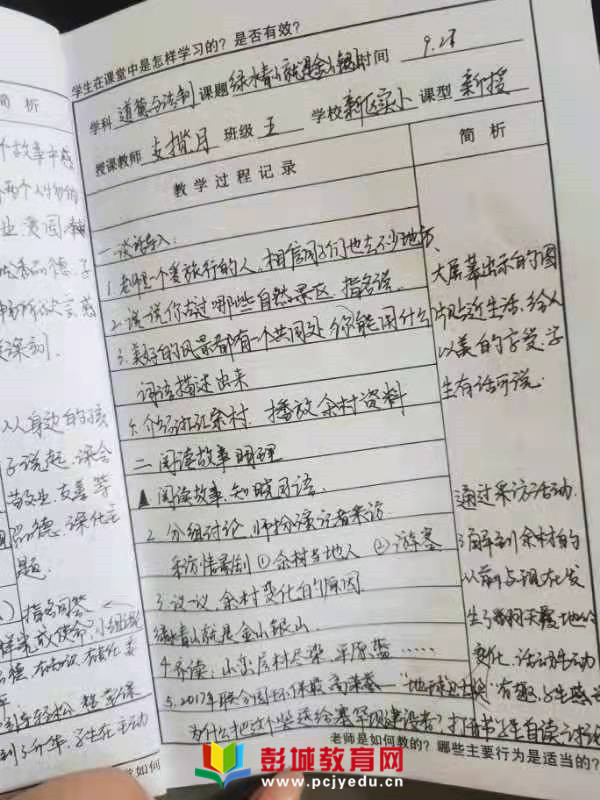 学生在课堂中是怎样学习的？是否有效？
学科 道德与法制 课题 绿水青山就是金山银山 时间 9.28
授课教师 支 月 班级 五 学校 新区实小 课型 新授
教学过程记录
简 析
一、谈话导入：
1. 老师是一个爱旅行的人，相信同学们也去不少地方
2. 说一说你去过哪些自然景区，指名说
3. 美好的风景都有一个共同处 你能用什么
词语描述出来
介绍浙江余村 播放余村资料
大屏幕出示的图
片贴近生活，给人
以美的享受，学
生有话可说
二、阅读故事明理
阅读故事，知晓
2. 分组讨论，师扮演记者采访
采访情景剧 ① 余村当地人 ② 游客
3. 议一议，余村变化的原因
绿水青山就是金山银山
4. 齐读：山峦层林尽染，平原蓝……
5. 2017年联合国环保最高荣誉 "地球卫士奖"
为什么把这个奖送给塞罕坝建设者？打开书学生自读
通过采访活动
了解到余村的
以前与现在发
生了翻天覆地的
变化，活动生动
有趣，学生感
老师是如何教的？哪些主要行为是适当的？
简 析
个故事中感
品德，学
深刻
从身边的孩
子说起，体会
敬业、友善等
品德，深化主
题
指名回答
学生在主动
如何
彭城教育网
www.pcjyedu.cn